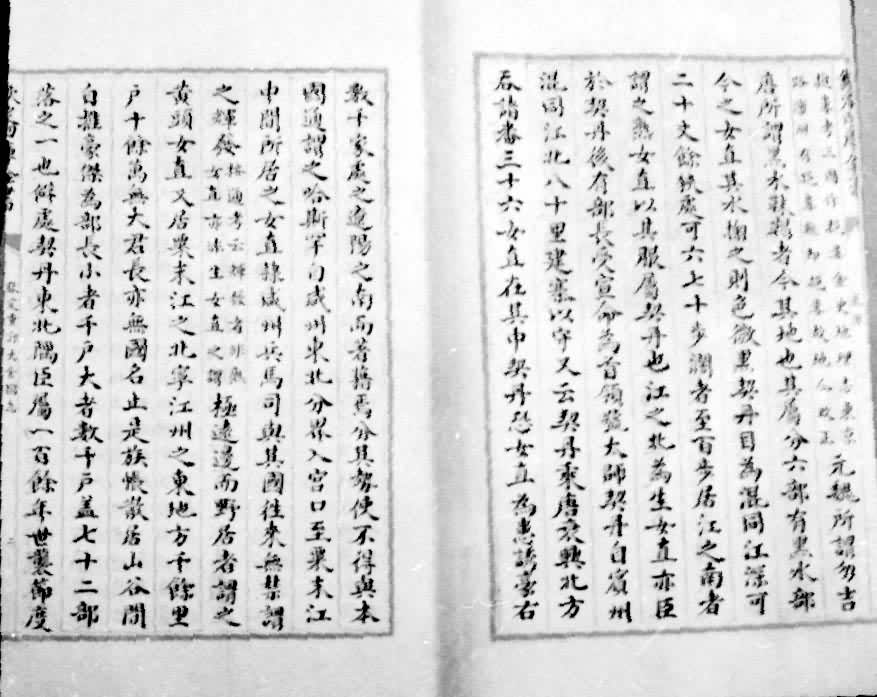 元魏所謂勿吉
唐所謂黑水靺鞨者今其地也其屬分六部有黑水部
今之女直其水掬之則色微黑契丹目為混同江深可
二十丈餘狹處可六七十步濶者至百步居江之南者
謂之熟女直以其服屬契丹也江之北為生女直亦臣
於契丹後有部長受宣命為首領號大師契丹自賓州
混同江北八十里建寨以守又云契丹乘唐衰興北方
吞諸番三十六女直在其中契丹恐女直為患誘豪右
數千家處之遼陽之南而著籍焉分其勢使不得與本
國通謂之哈斯罕自咸州東北分界入宫口至粟末江
中間所居之女直隸咸州兵馬司與其國往來無禁謂
之輝發按通考云輝發者非熟女直亦非生女直之謂極遠邊而野居者謂之
黄頭女直又居粟末江之北寧江州之東地方千餘里
户十餘萬無大君長亦無國名止是族帳散居山谷間
自推豪傑為部長小者千户大者數千户盖七十二部
落之一也僻處契丹東北隅臣屬一百餘年世襲節度
欽定重訂大金國志